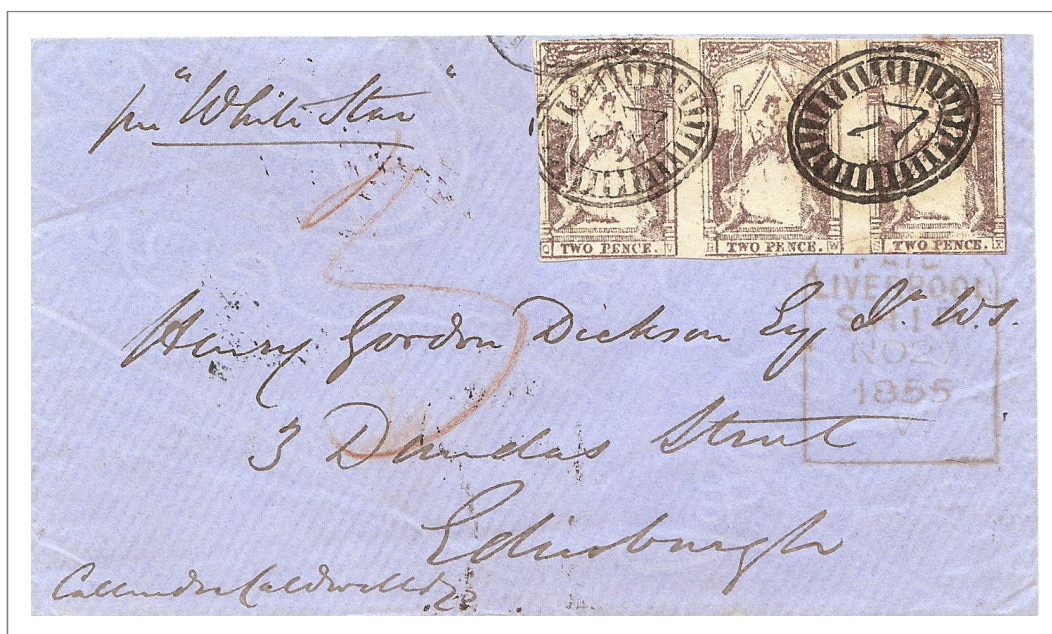 per "White Star"
TWO PENCE. TWO PENCE. TWO PENCE.
PAID
LIVERPOOL
SHIP
NO27
1855
Henry Gordon Dickson Esq Jr. W.S.
3 Dundas Street
Edinburgh
Callender Caldwell & Co